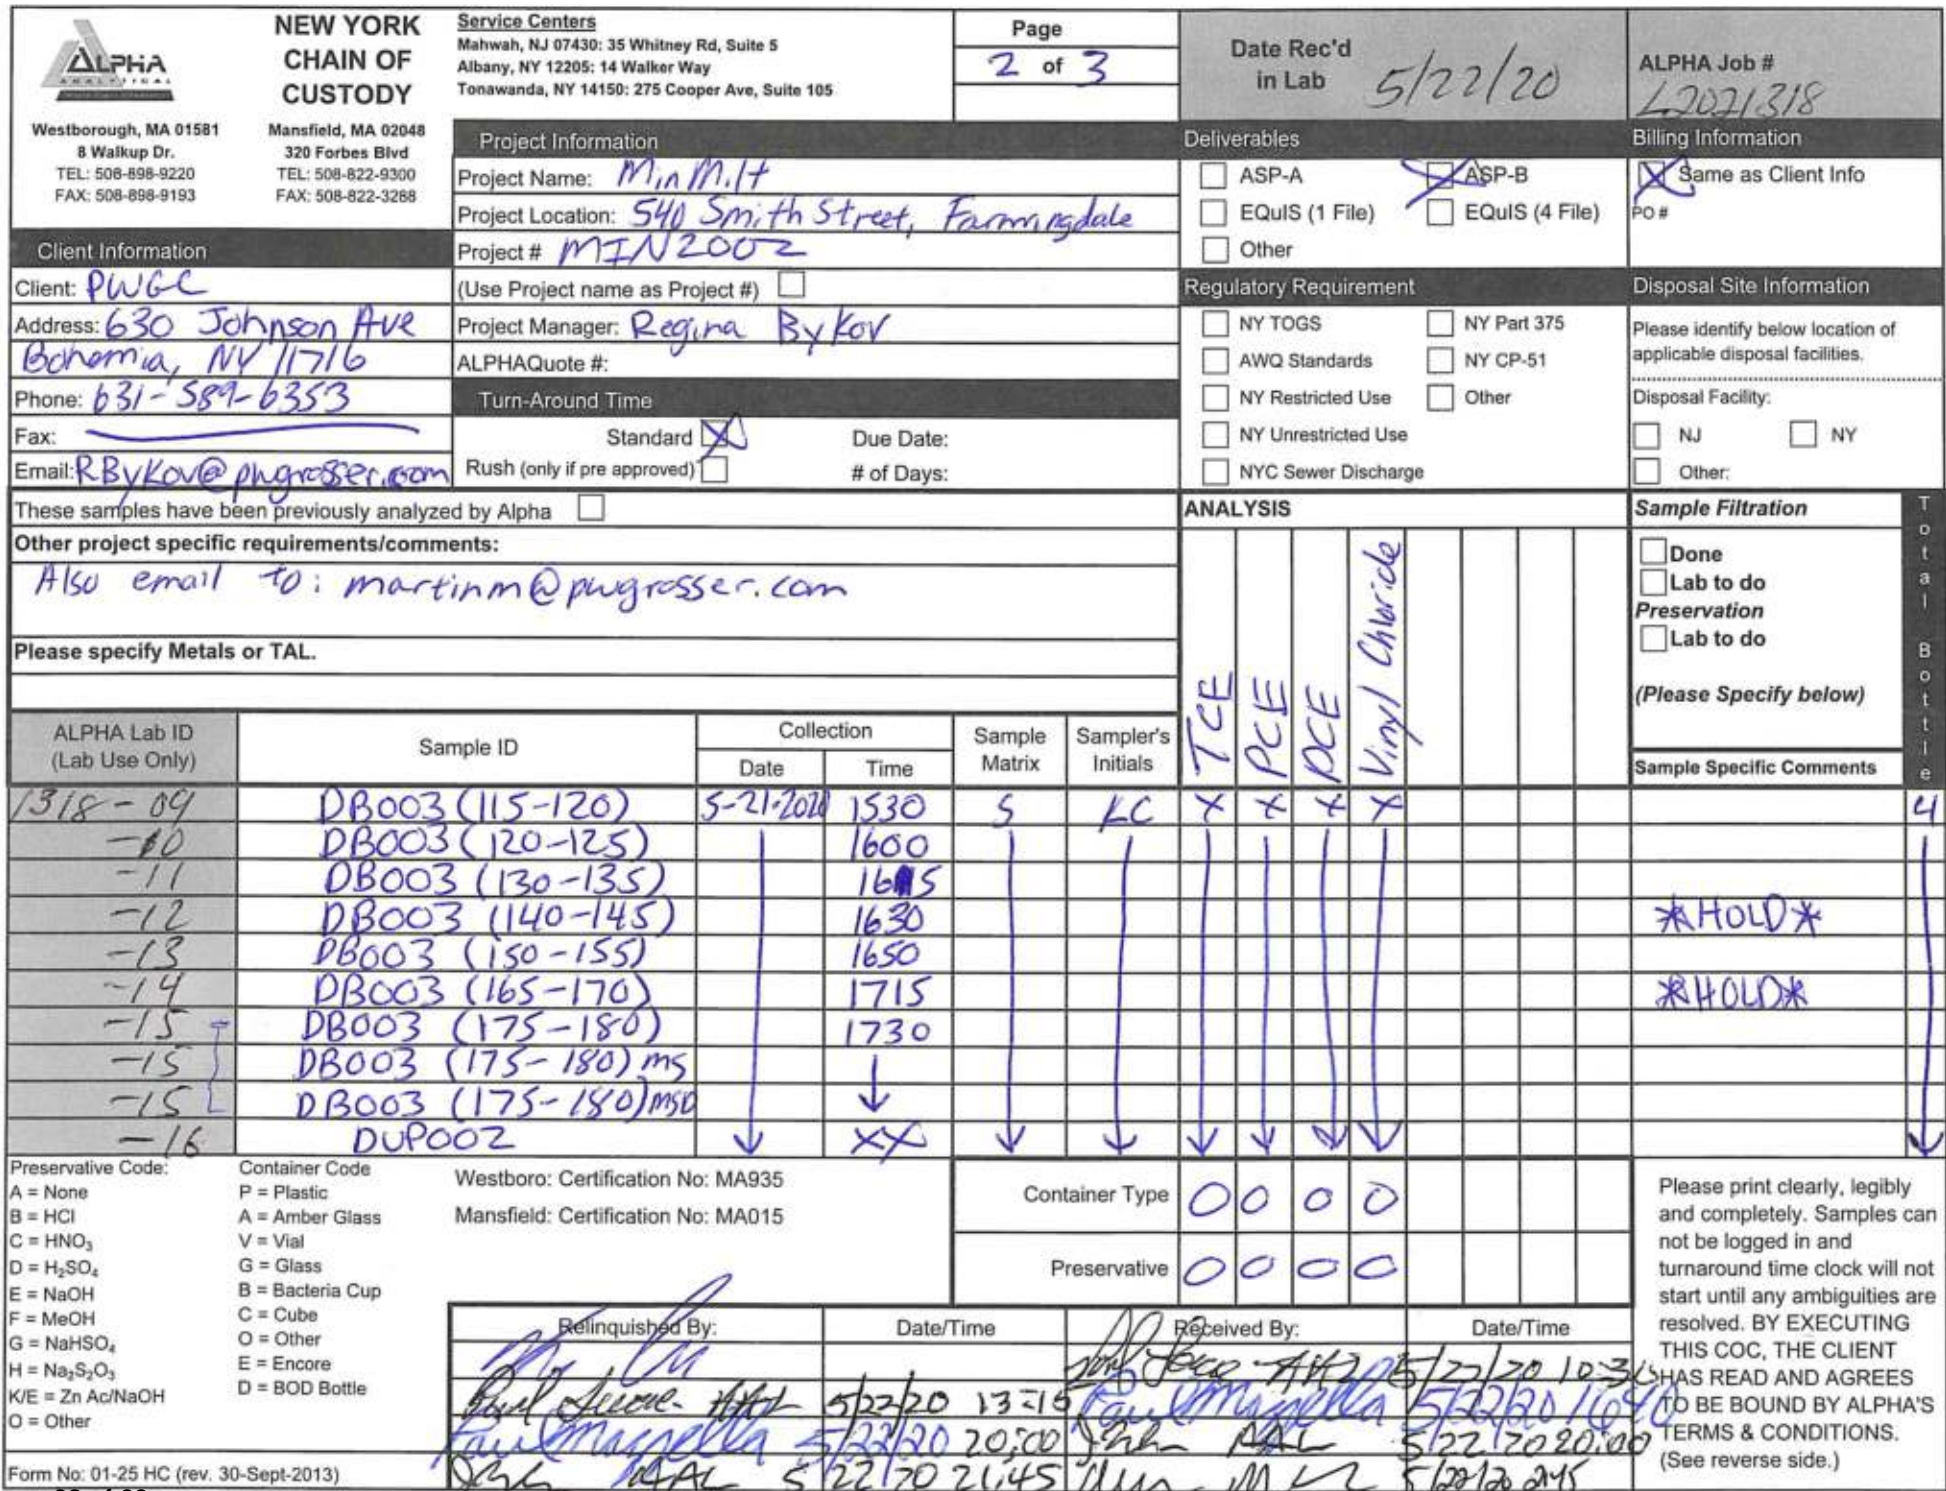 ALPHA
ANALYTICAL
Westborough, MA 01581
8 Walkup Dr.
TEL: 508-898-9220
FAX: 508-898-9193
NEW YORK
CHAIN OF
CUSTODY
Mansfield, MA 02048
320 Forbes Blvd
TEL: 508-822-9300
FAX: 508-822-3288
Service Centers
Mahwah, NJ 07430: 35 Whitney Rd, Suite 5
Albany, NY 12205: 14 Walker Way
Tonawanda, NY 14150: 275 Cooper Ave, Suite 105
Page
2 of 3
Date Rec'd
in Lab 5/22/20
ALPHA Job #
L2021318
Client Information
Client: PWGC
Address: 630 Johnson Ave
Bohemia, NY 11716
Phone: 631-589-6353
Fax:
Email: RBykov@pwgrosser.com
Project Information
Project Name: MinMilt
Project Location: 540 Smith Street, Farmingdale
Project # MIN2002
(Use Project name as Project #)
Project Manager: Regina Bykov
ALPHAQuote #:
Turn-Around Time
Standard X Due Date:
Rush (only if pre approved) # of Days:
Deliverables
ASP-A X ASP-B
EQuIS (1 File) EQuIS (4 File)
Other
Regulatory Requirement
NY TOGS NY Part 375
AWQ Standards NY CP-51
NY Restricted Use Other
NY Unrestricted Use
NYC Sewer Discharge
Billing Information
X Same as Client Info
PO #
Disposal Site Information
Please identify below location of
applicable disposal facilities.
Disposal Facility:
NJ NY
Other:
These samples have been previously analyzed by Alpha
Other project specific requirements/comments:
Also email to: martinm@pwgrosser.com
Please specify Metals or TAL.
ANALYSIS
TCE
PCE
DCE
Vinyl Chloride
Sample Filtration
Done
Lab to do
Preservation
Lab to do
(Please Specify below)
Total Bottle
ALPHA Lab ID
(Lab Use Only)
Sample ID
Collection
Date Time
Sample
Matrix
Sampler's
Initials
Sample Specific Comments
1318-09 DB003 (115-120) 5-21-2020 1530 S KC X X X X 4
-10 DB003 (120-125) 1600
-11 DB003 (130-135) 1615
-12 DB003 (140-145) 1630 *HOLD*
-13 DB003 (150-155) 1650
-14 DB003 (165-170) 1715 *HOLD*
-15 DB003 (175-180) 1730
-15 DB003 (175-180) MS
-15 DB003 (175-180) MSD
-16 DUP002 XX
Preservative Code:
A = None
B = HCl
C = HNO₃
D = H₂SO₄
E = NaOH
F = MeOH
G = NaHSO₄
H = Na₂S₂O₃
K/E = Zn Ac/NaOH
O = Other
Container Code
P = Plastic
A = Amber Glass
V = Vial
G = Glass
B = Bacteria Cup
C = Cube
O = Other
E = Encore
D = BOD Bottle
Westboro: Certification No: MA935
Mansfield: Certification No: MA015
Container Type O O O O
Preservative O O O O
Relinquished By: Date/Time Received By: Date/Time
5/22/20 10:30
5/22/20 13:15 Paul Mazzella 5/22/20 1640
Paul Mazzella 5/22/20 20:00 AAL 5/22/20 20:00
AAL 5/22/20 21:45 5/22/20 2145
Please print clearly, legibly
and completely. Samples can
not be logged in and
turnaround time clock will not
start until any ambiguities are
resolved. BY EXECUTING
THIS COC, THE CLIENT
HAS READ AND AGREES
TO BE BOUND BY ALPHA'S
TERMS & CONDITIONS.
(See reverse side.)
Form No: 01-25 HC (rev. 30-Sept-2013)